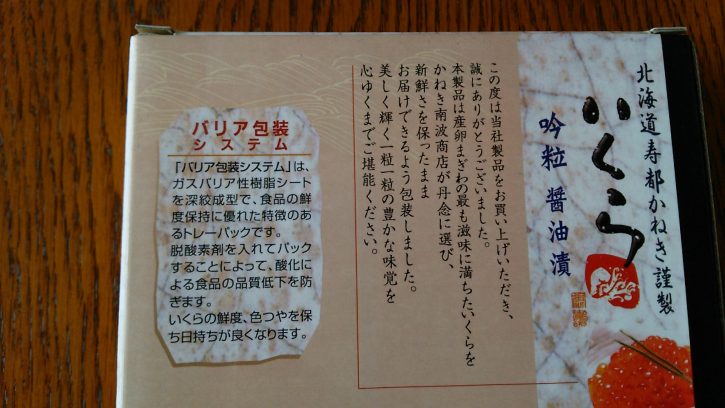 北海道寿都かねき謹製
いくら
吟粒 醤油漬
この度は当社製品をお買い上げいただき、
誠にありがとうございました。
本製品は産卵まぎわの最も滋味に満ちたいくらを
かねき南波商店が丹念に選び、
新鮮さを保ったまま
お届けできるよう包装しました。
美しく輝く一粒一粒の豊かな味覚を
心ゆくまでご堪能ください。
バリア包装
システム
「バリア包装システム」は、
ガスバリア性樹脂シート
を深絞成型で、食品の鮮
度保持に優れた特徴のあ
るトレーパックです。
脱酸素剤を入れてパック
することによって、酸化に
よる食品の品質低下を防
ぎます。
いくらの鮮度、色つやを保
ち日持ちが良くなります。